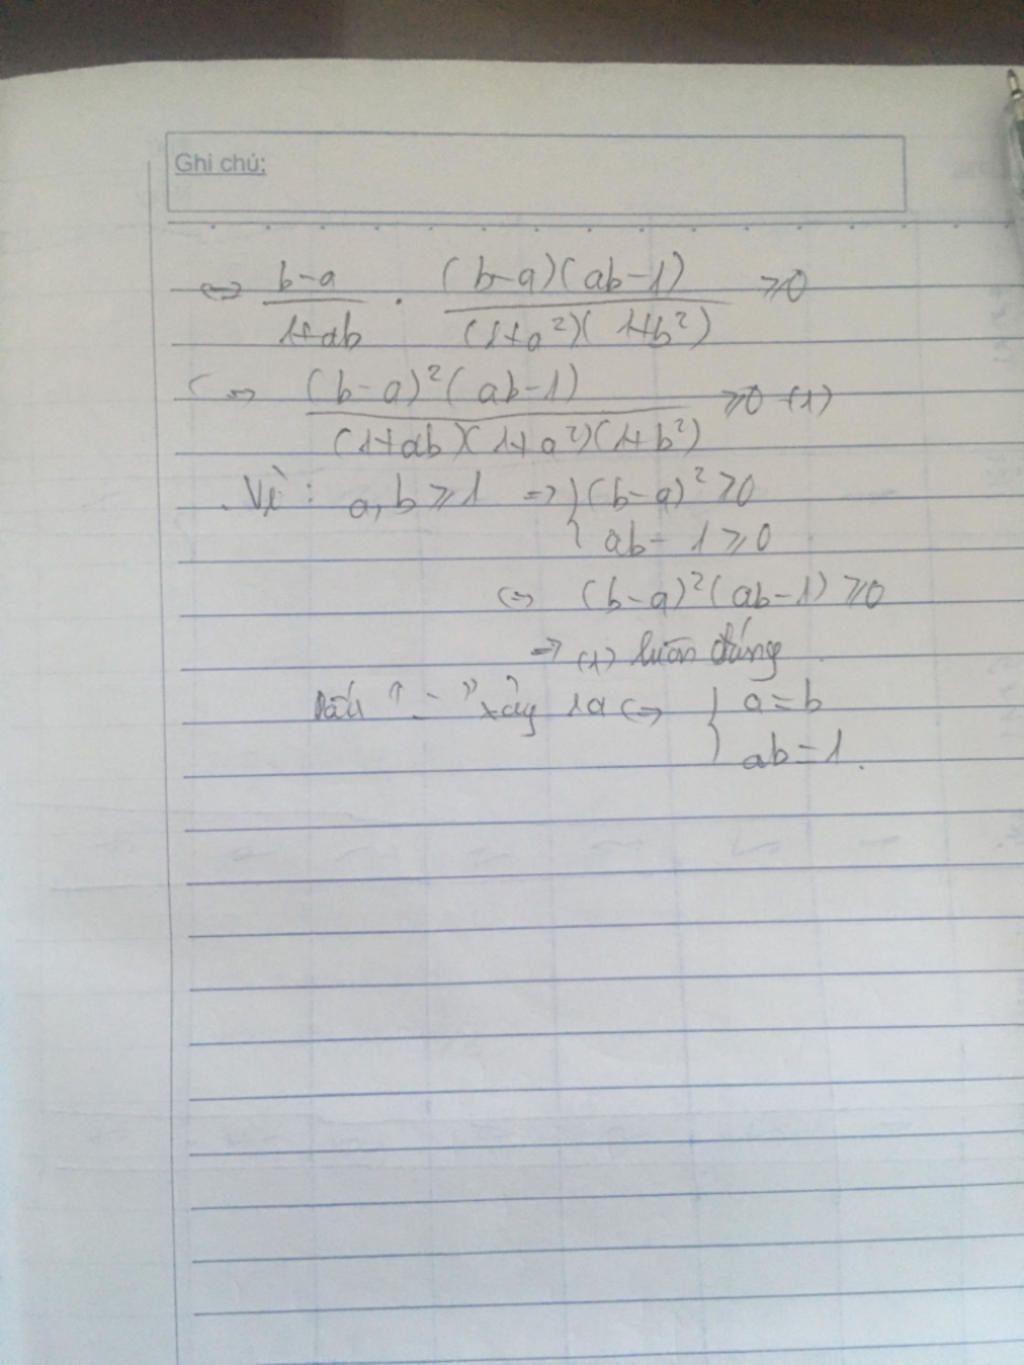 Ghi chú:
⇔ b-a/1+ab . (b-a)(ab-1)/(1+a²)(1+b²) ≥0
⇔ (b-a)²(ab-1)/(1+ab)(1+a²)(1+b²) ≥0 (1)
Vì: a, b ≥ 1 => { (b-a)² ≥0
{ ab - 1 ≥ 0
⇔ (b-a)²(ab-1) ≥0
=> (1) luôn đúng
Dấu "=" xảy ra ⇔ { a = b
{ ab = 1.